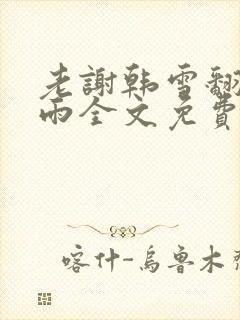 老謝韩雪翻
雨全文免費
喀什-烏魯木齊